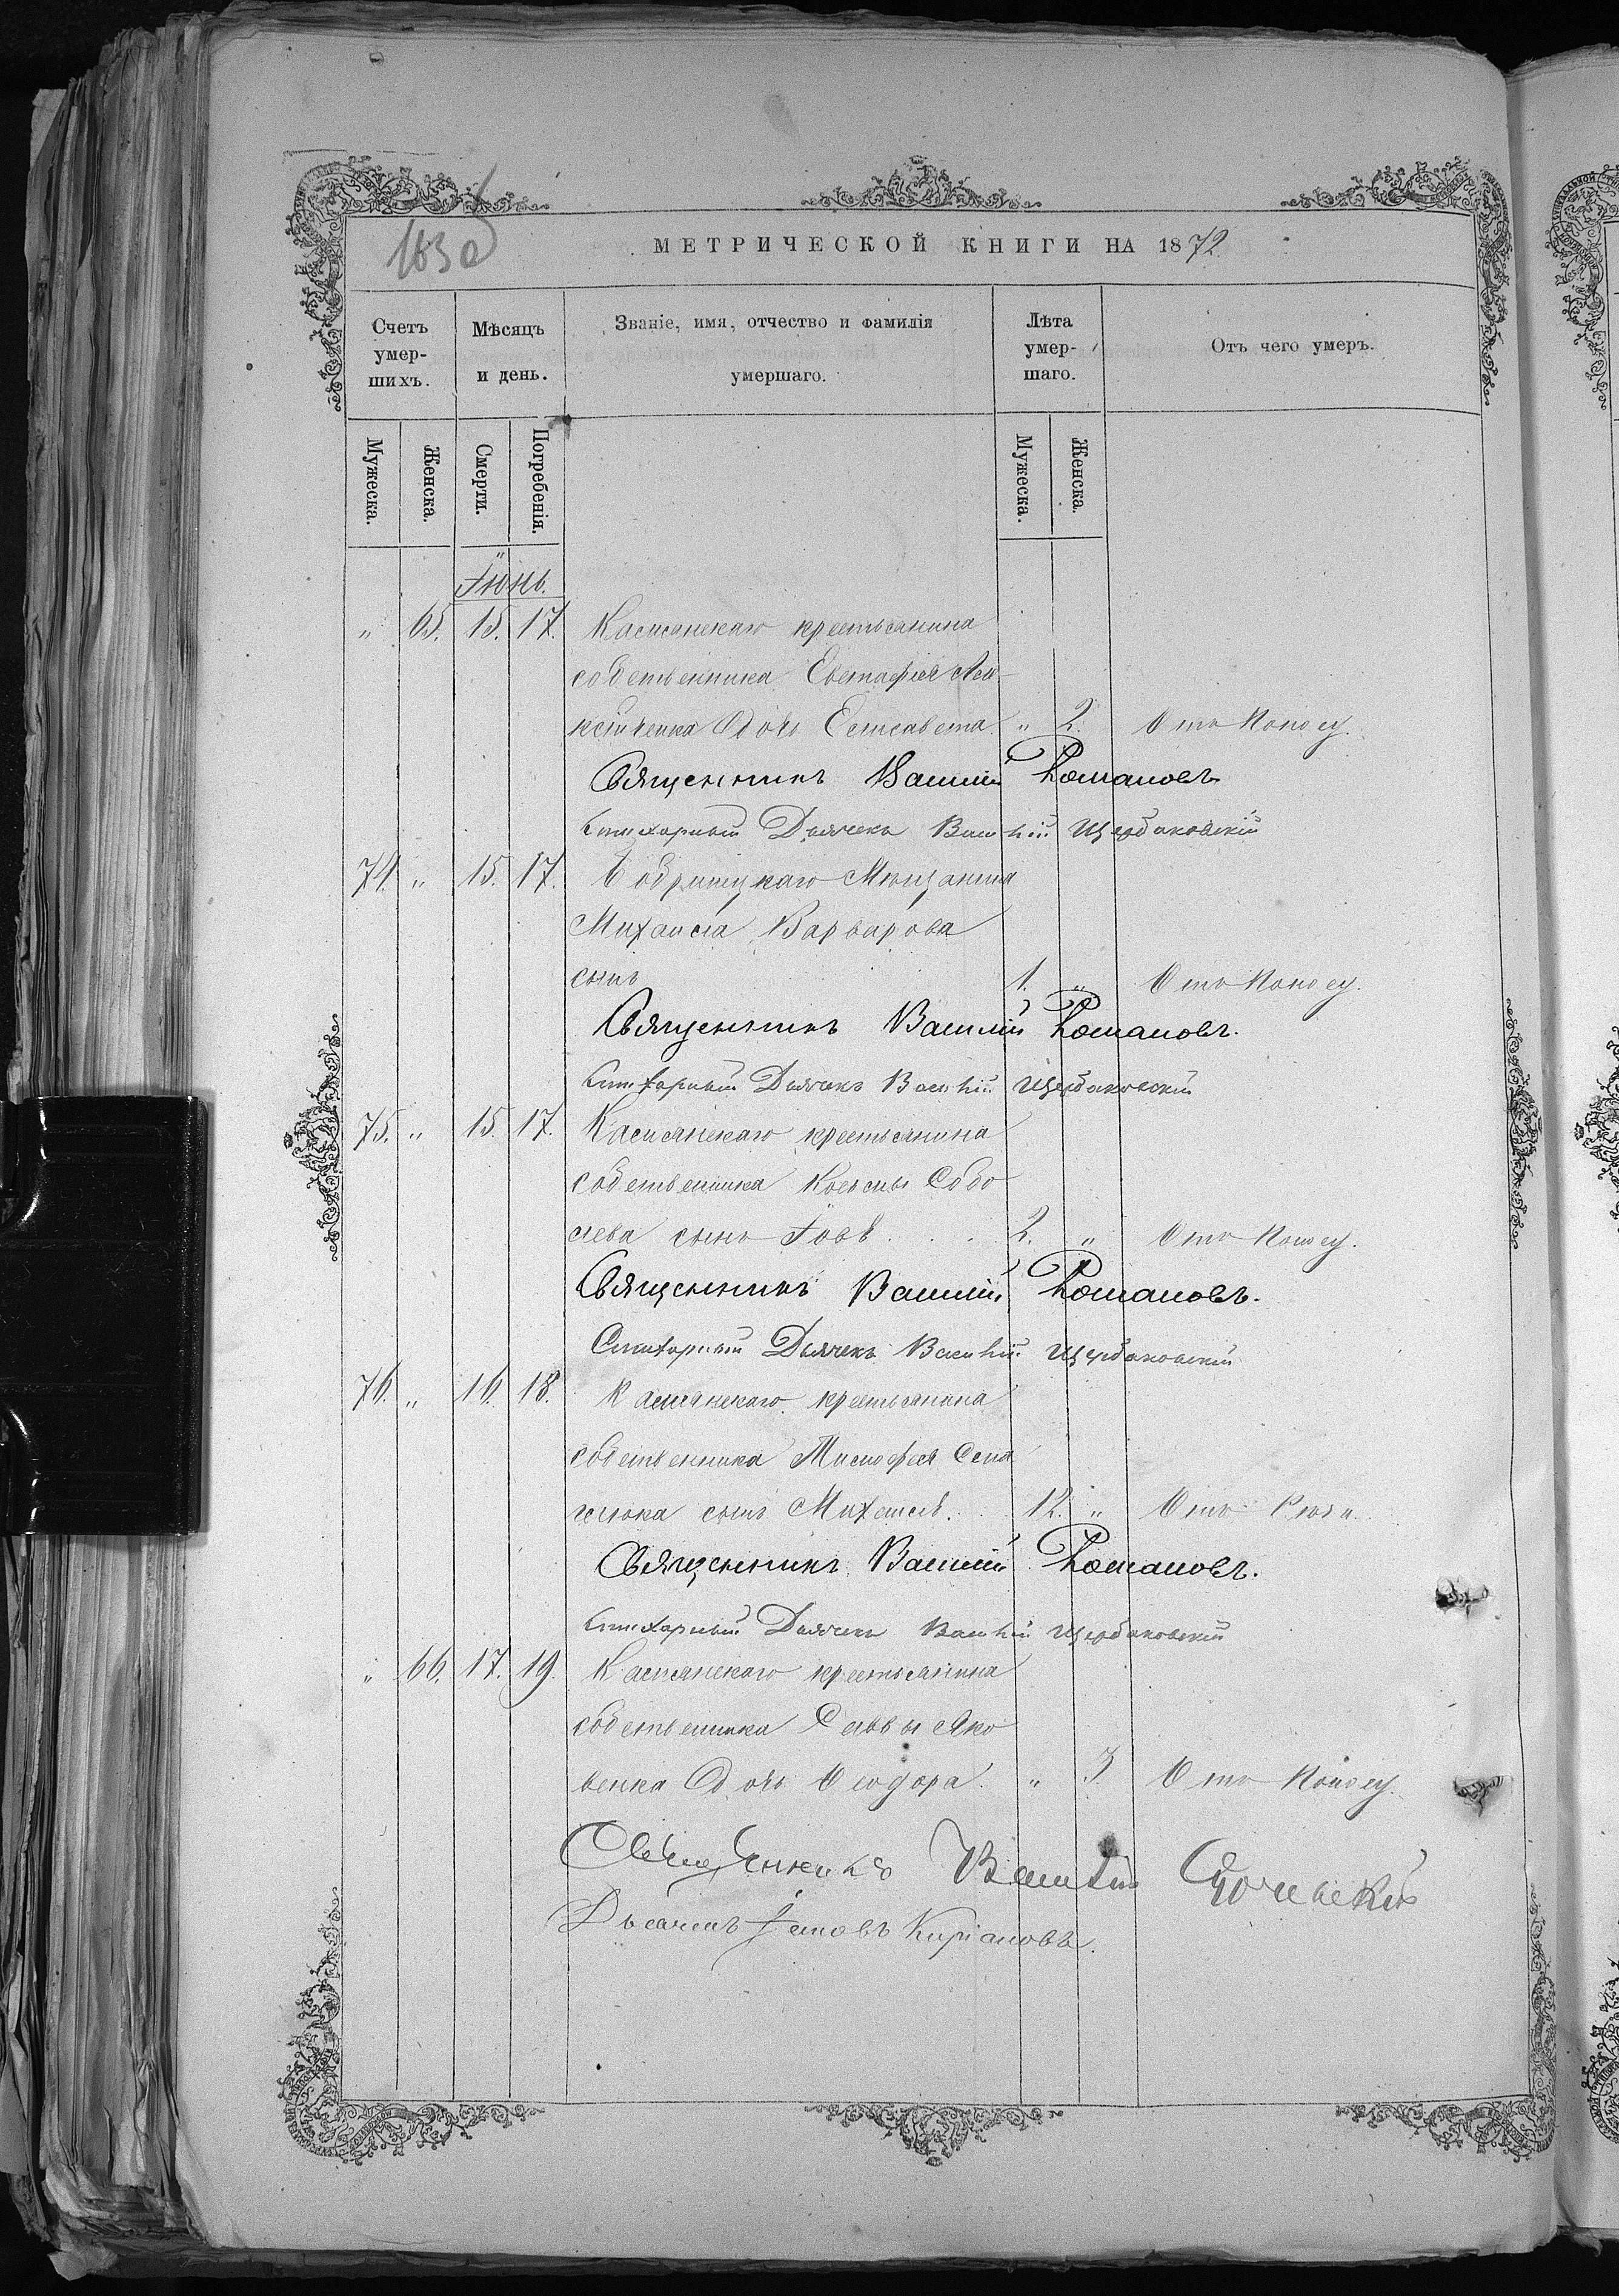 МЕТРИЧЕСКОЙ КНИГИ НА 1872
Счетъ умершихъ. Мѣсяцъ и день. Званіе, имя, отчество и фамилія умершаго. Лѣта умершаго. Отъ чего умеръ.
Мужеска. Женска. Смерти. Погребенія. Мужеска. Женска.
Іюнь.
" 65. 15. 17. крестьянина
собственника Евстафія
дочь Елисавета " 2. Отъ Поносу.
Священникъ Василій Романовъ
Стихарный Дьячекъ Василій Щербаковскій
74. " 15. 17. Бобринецкаго Мѣщанина
Михаила Варварова
сынъ 1. " Отъ Поносу.
Священникъ Василій Романовъ.
Стихарный Дьячекъ Василій Щербаковскій
75. " 15. 17. крестьянина
собственника Космы Собо
лева сынъ Іовъ. . . 2. " Отъ Поносу.
Священникъ Василій Романовъ.
Стихарный Дьячекъ Василій Щербаковскій
76. " 16. 18. крестьянина
собственника
сынъ Михаилъ. 12. " Отъ
Священникъ Василій Романовъ.
Стихарный Дьячекъ Василій Щербаковскій
" 66. 17. 19. крестьянина
собственника Саввы Яко
венка дочь Ѳеодора. " 3. Отъ Поносу.
Священникъ Василій
Дьячекъ Іаковъ Киріаковъ.